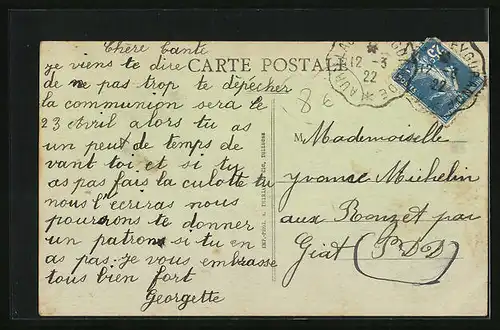 Chère tante
je viens te dire
de ne pas trop te dépêcher
la communion sera le
23 Avril alors tu as
un peu de temps de
vant toi et si tu
as pas fais la culotte tu
nous l'écriras nous
pourrons te donner
un patron si tu en
as pas. je vous embrasse
tous bien fort
Georgette
CARTE POSTALE
12 - 3
22
83
M Mademoiselle
Yvonne Michelin
aux Rouzet par
Giat (P D D)